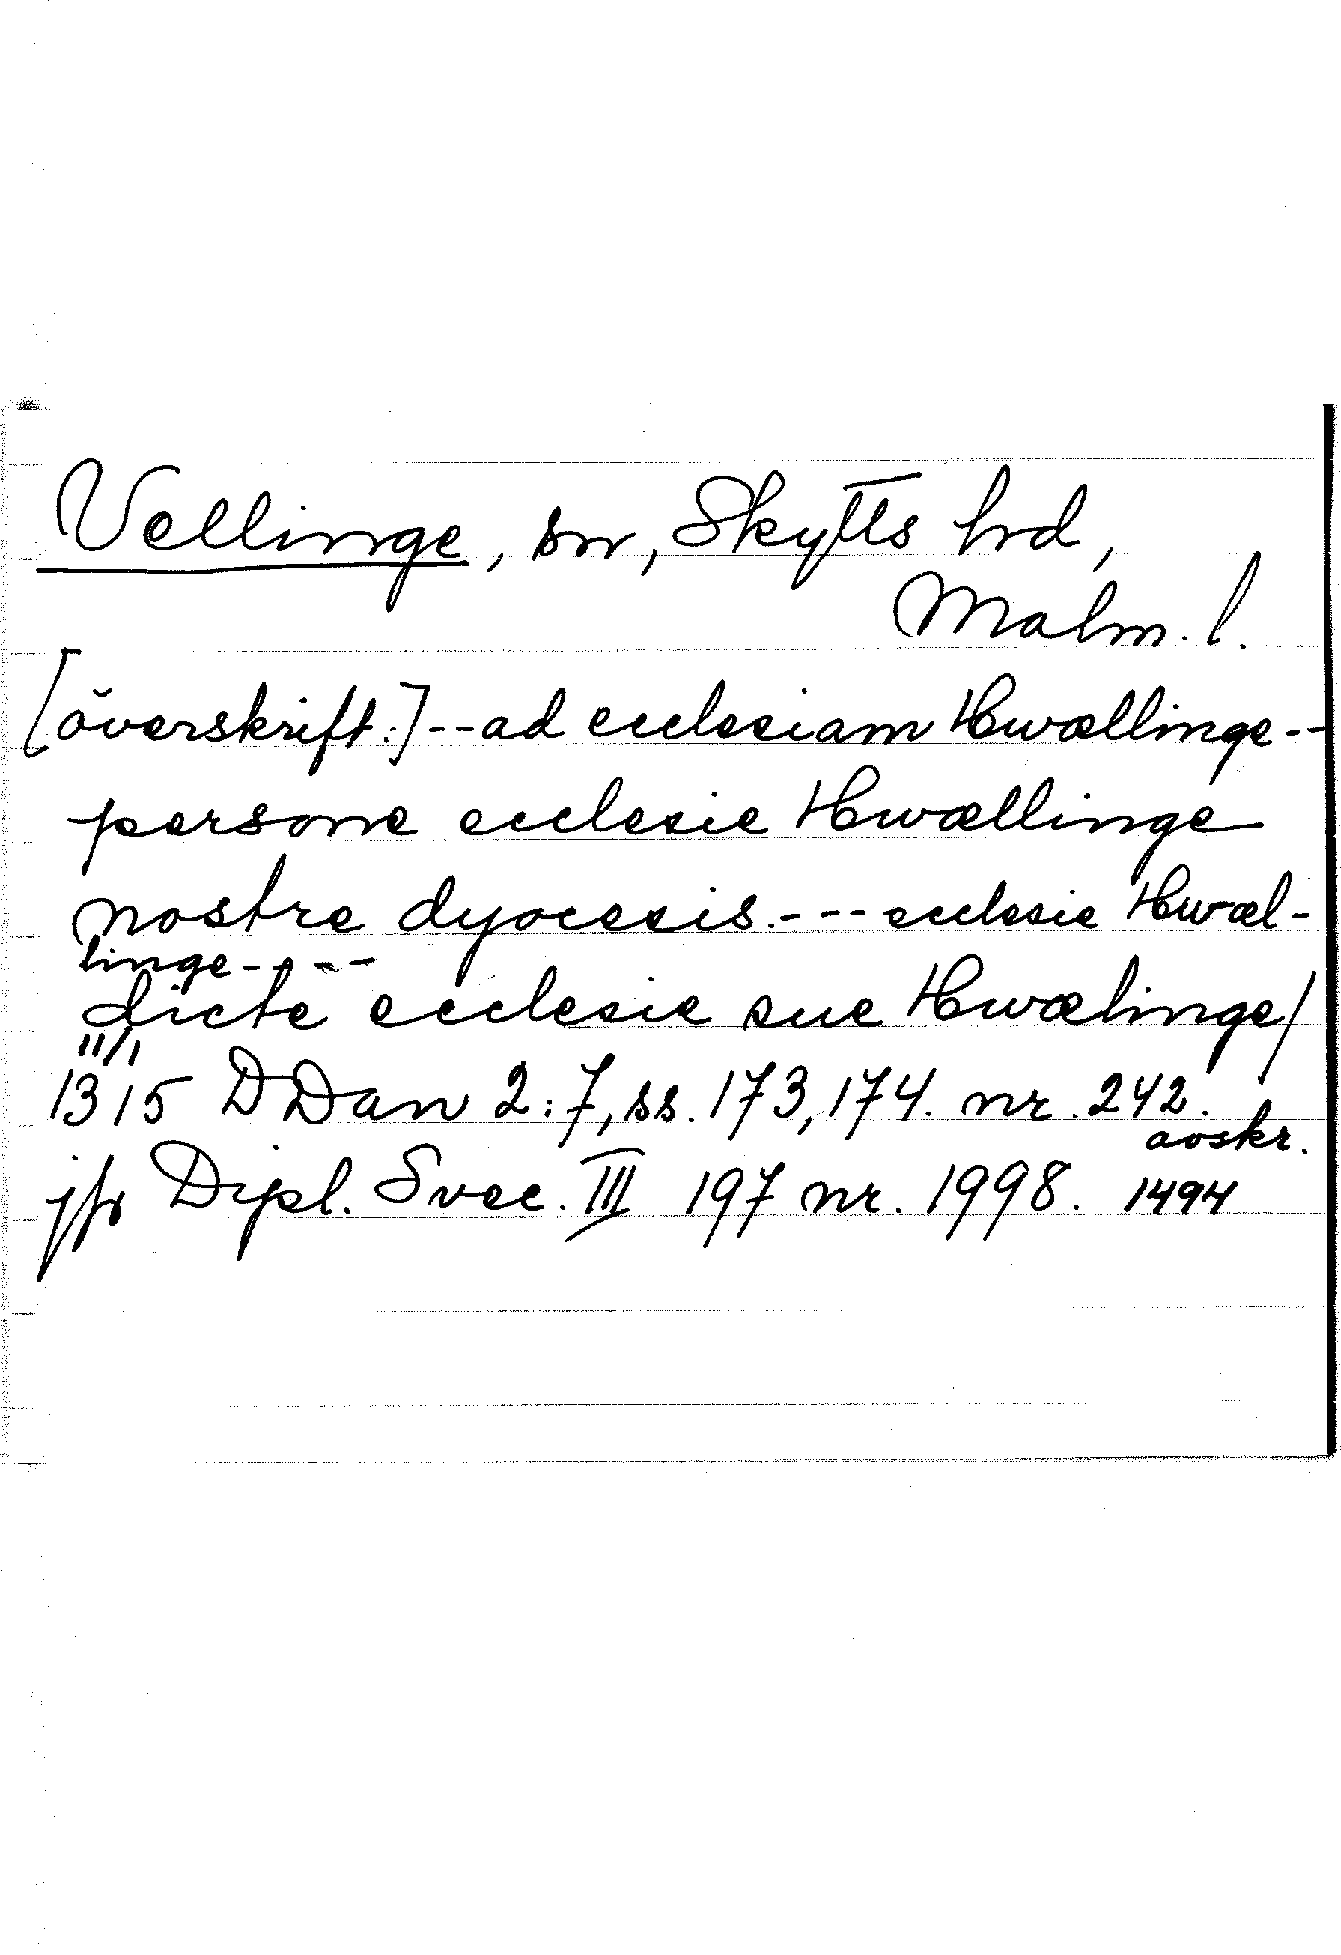 Vellinge, sn, Skytts hrd,
Malm. l.
[överskrift:]--ad ecclesiam Hwællinge--
persone ecclesie Hwællinge
nostre dyocesis.---ecclesie Hwæl-
linge----
dicte ecclesie sue Hwælinge/
11/1
1315 DDan 2:7, ss. 173, 174. nr. 242.
avskr.
jfr Dipl. Svec. III 197 nr. 1998. 1494